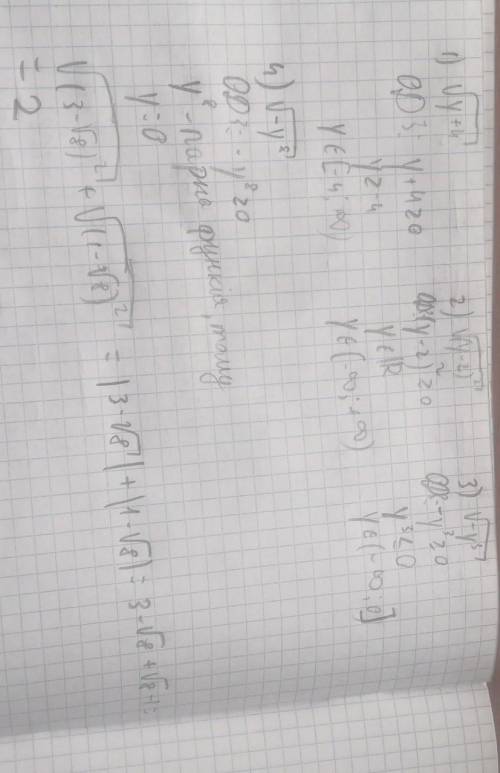 1) √y+4
ОДЗ: y+4≥0
y≥-4
y∈[-4;+∞)
2) √(y-2)²
ОДЗ: (y-2)²≥0
y∈R
y∈(-∞;+∞)
3) √-y³
ОДЗ: -y³≥0
y³≤0
y∈(-∞;0]
4) √-y⁸
ОДЗ: -y⁸≥0
y⁸ - парна функція, тому
y=0
√(3-√8)² + √(1-√8)² = |3-√8| + |1-√8| = 3-√8+√8-1=
= 2